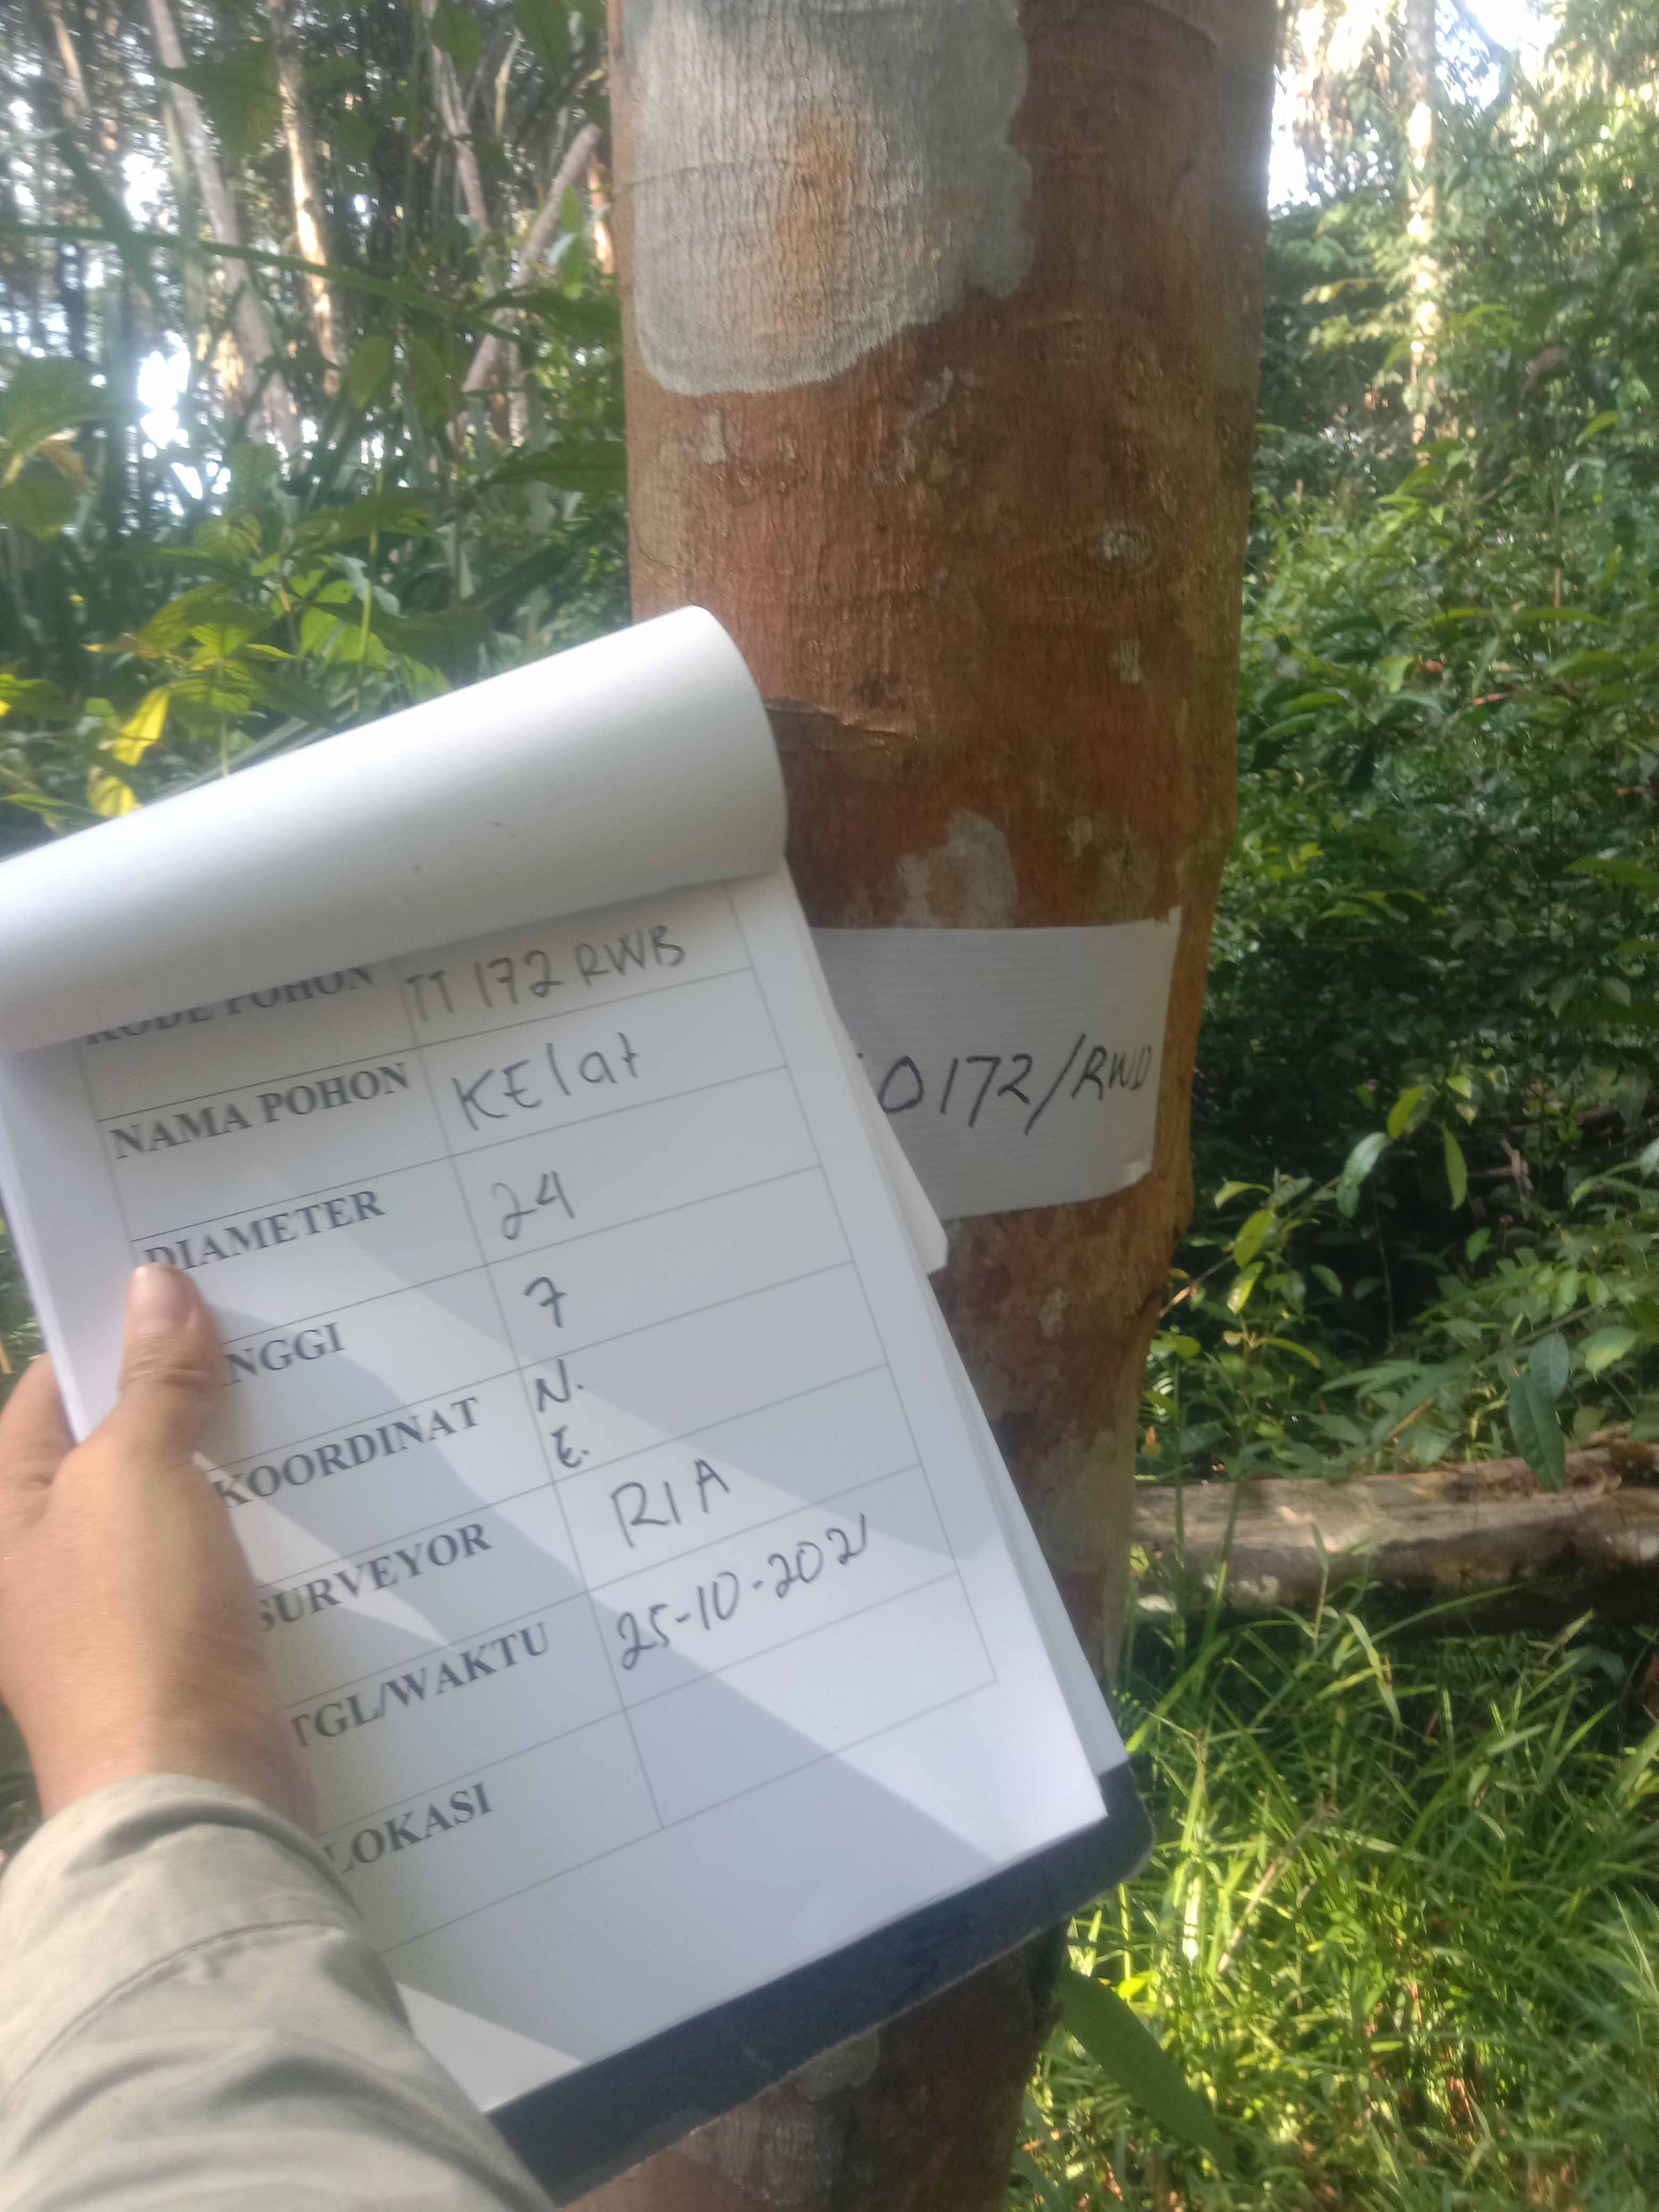 KODE POHON TT 172 RWB
NAMA POHON KElat
DIAMETER 24
NGGI 7
KOORDINAT N.
E.
SURVEYOR RIA
TGL/WAKTU 25-10-2021
LOKASI
0172/RWD